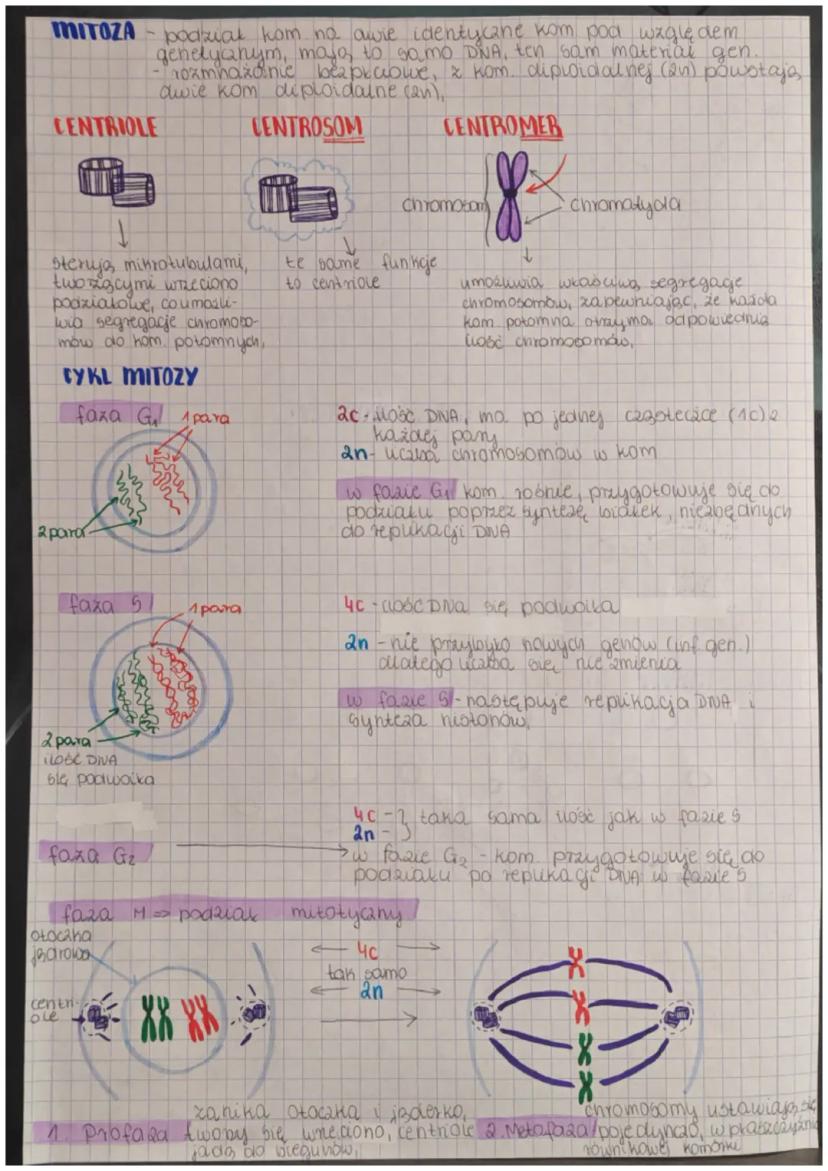 MITOZA - podział kom na dwie identyczne kom pod względem
genetycznym, mają to samo DNA, ten sam materiał gen.
- rozmnażanie bezpłciowe, z kom. diploidalnej (2n) powstają
dwie kom diploidalne (2n),
CENTRIOLE
CENTROSOM
CENTROMER
chromosom
chromatyda
sterują mikrotubulami,
tworzącymi wrzeciono
podziałowe, co umożli-
wia segregację chromoso-
mów do kom. potomnych,
te same funkcje
to centriole
umożliwia właściwą segregację
chromosomów, zapewniając, że każda
kom. potomna otrzyma odpowiednią
ilość chromosomów,
CYKL MITOZY
faza G1
1 para
2 para
2c - ilość DNA, ma po jednej cząsteczce (1c) z
każdej pary
2n - liczba chromosomów w kom
w fazie G1 kom. rośnie, przygotowuje się do
podziału poprzez syntezę białek, niezbędnych
do replikacji DNA
faza S
1 para
2 para
ilość DNA
się podwoiła
4c - ilość DNA się podwoiła
2n - nie przybyło nowych genów (inf. gen.)
dlatego liczba się nie zmienia
w fazie S - następuje replikacja DNA i
synteza histonów,
faza G2
4c - } taka sama ilość jak w fazie S
2n - }
w fazie G2 - kom. przygotowuje się do
podziału po replikacji DNA w fazie S
faza M => podział mitotyczny
otoczka
jądrowa
centri-
ole
4c
tak samo
2n
1. Profaza zanika otoczka i jąderko,
tworzy się wrzeciono, centriole
jadą do biegunów,
2. Metafaza chromosomy ustawiają się
pojedynczo, w płaszczyźnie
równikowej komórki